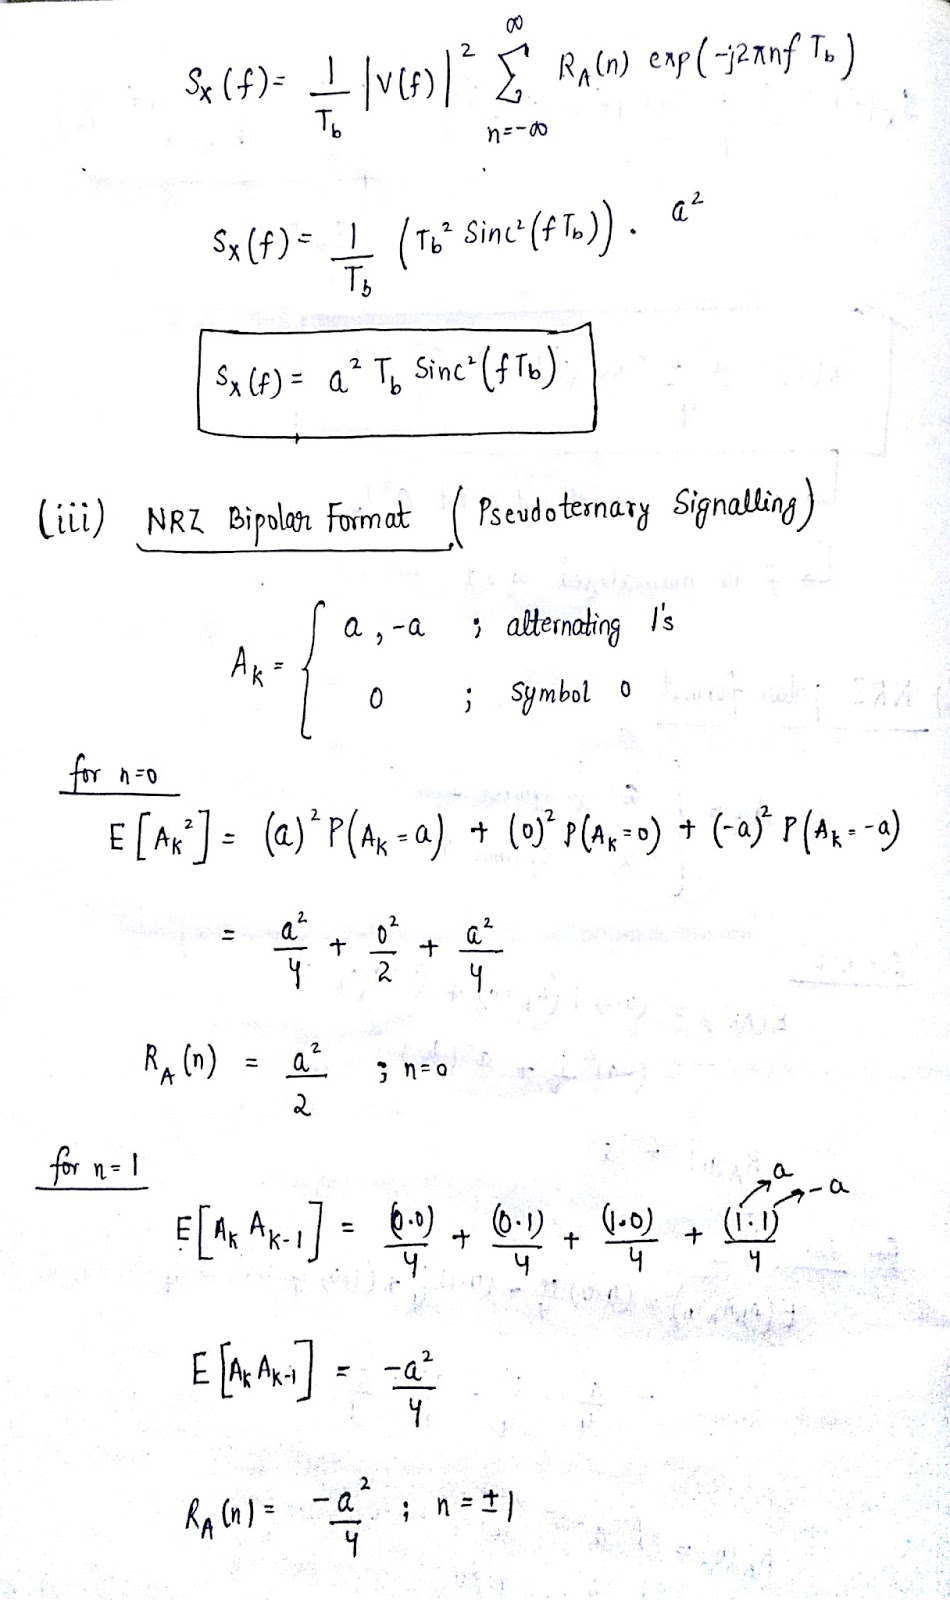 Sx(f) = 1/Tb |V(f)|² ∑_{n=-∞}^{∞} R_A(n) exp(-j2πnf Tb)
Sx(f) = 1/Tb (Tb² Sinc²(f Tb)) . a²
Sx(f) = a² Tb Sinc²(f Tb)
(iii) NRZ Bipolar Format (Pseudoternary Signalling)
A_K = { a, -a ; alternating 1's
0 ; Symbol 0
for n=0
E[A_K²] = (a)² P(A_K = a) + (0)² P(A_K = 0) + (-a)² P(A_K = -a)
= a²/4 + 0²/2 + a²/4
R_A(n) = a²/2 ; n=0
for n=1
a
-a
E[A_K A_K-1] = (0.0)/4 + (0.1)/4 + (1.0)/4 + (1.1)/4
E[A_K A_K-1] = -a²/4
R_A(n) = -a²/4 ; n = ±1